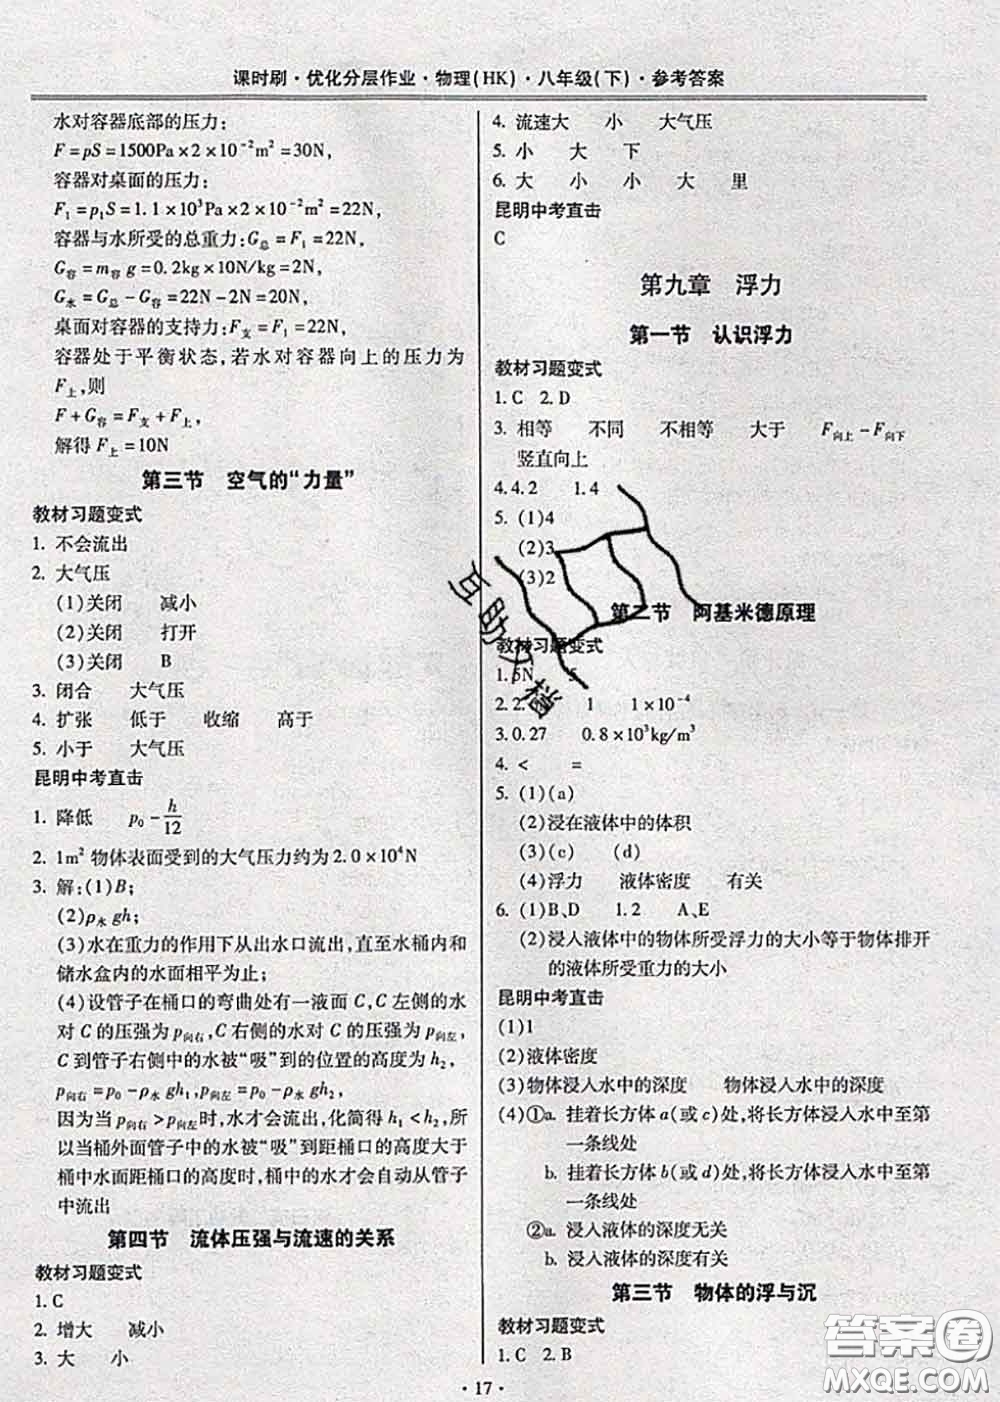 课时刷·优化分层作业·物理(HK)·八年级(下)·参考答案
水对容器底部的压力:
F=pS=1500Pa×2×10⁻²m²=30N,
容器对桌面的压力:
F₁=p₁S=1.1×10³Pa×2×10⁻²m²=22N,
容器与水所受的总重力:G总=F₁=22N,
G容=m容g=0.2kg×10N/kg=2N,
G水=G总-G容=22N-2N=20N,
桌面对容器的支持力:F支=F₁=22N,
容器处于平衡状态,若水对容器向上的压力为
F上,则
F+G容=F支+F上,
解得F上=10N
第三节 空气的“力量”
教材习题变式
1. 不会流出
2. 大气压
(1)关闭 减小
(2)关闭 打开
(3)关闭 B
3. 闭合 大气压
4. 扩张 低于 收缩 高于
5. 小于 大气压
昆明中考直击
1. 降低 p₀-h/12
2. 1m²物体表面受到的大气压力约为2.0×10⁴N
3. 解:(1)B;
(2)ρ水gh;
(3)水在重力的作用下从出水口流出,直至水桶内和
储水盒内的水面相平为止;
(4)设管子在桶口的弯曲处有一液面C,C左侧的水
对C的压强为p向右,C右侧的水对C的压强为p向左,
C到管子右侧中的水被“吸”到的位置的高度为h₂,
p向右=p₀-ρ水gh₁,p向左=p₀-ρ水gh₂,
因为当p向右>p向左时,水才会流出,化简得h₁<h₂,所
以当桶外面管子中的水被“吸”到距桶口的高度大于
桶中水面距桶口的高度时,桶中的水才会自动从管子
中流出
第四节 流体压强与流速的关系
教材习题变式
1. C
2. 增大 减小
3. 大 小
4. 流速大 小 大气压
5. 小 大 下
6. 大 小 小 大 里
昆明中考直击
C
第九章 浮力
第一节 认识浮力
教材习题变式
1. C 2. D
3. 相等 不同 不相等 大于 F向上-F向下
竖直向上
4. 4.2 1.4
5. (1)4
(2)3
(3)2
第二节 阿基米德原理
教材习题变式
1. 5N 5
2. 2. 1 1×10⁻⁴
3. 0.27 0.8×10³kg/m³
4. < =
5. (1)(a)
(2)浸在液体中的体积
(3)(c) (d)
(4)浮力 液体密度 有关
6. (1)B、D 1.2 A、E
(2)浸入液体中的物体所受浮力的大小等于物体排开
的液体所受重力的大小
昆明中考直击
(1)1
(2)液体密度
(3)物体浸入水中的深度 物体浸入水中的深度
(4)①a. 挂着长方体a(或c)处,将长方体浸入水中至第
一条线处
b. 挂着长方体b(或d)处,将长方体浸入水中至第
一条线处
②a. 浸入液体的深度无关
b. 浸入液体的深度有关
第三节 物体的浮与沉
教材习题变式
1. C 2. B
·17·
互助文档
答案圈
MXQE.COM